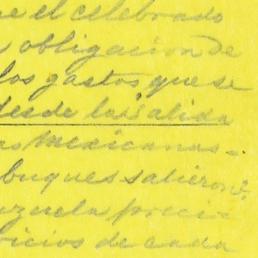 el celebrado
obligacion de
los gastos que se
desde la salida
as Mexicanas
buques salieron
zuela preci-
vicios de cada